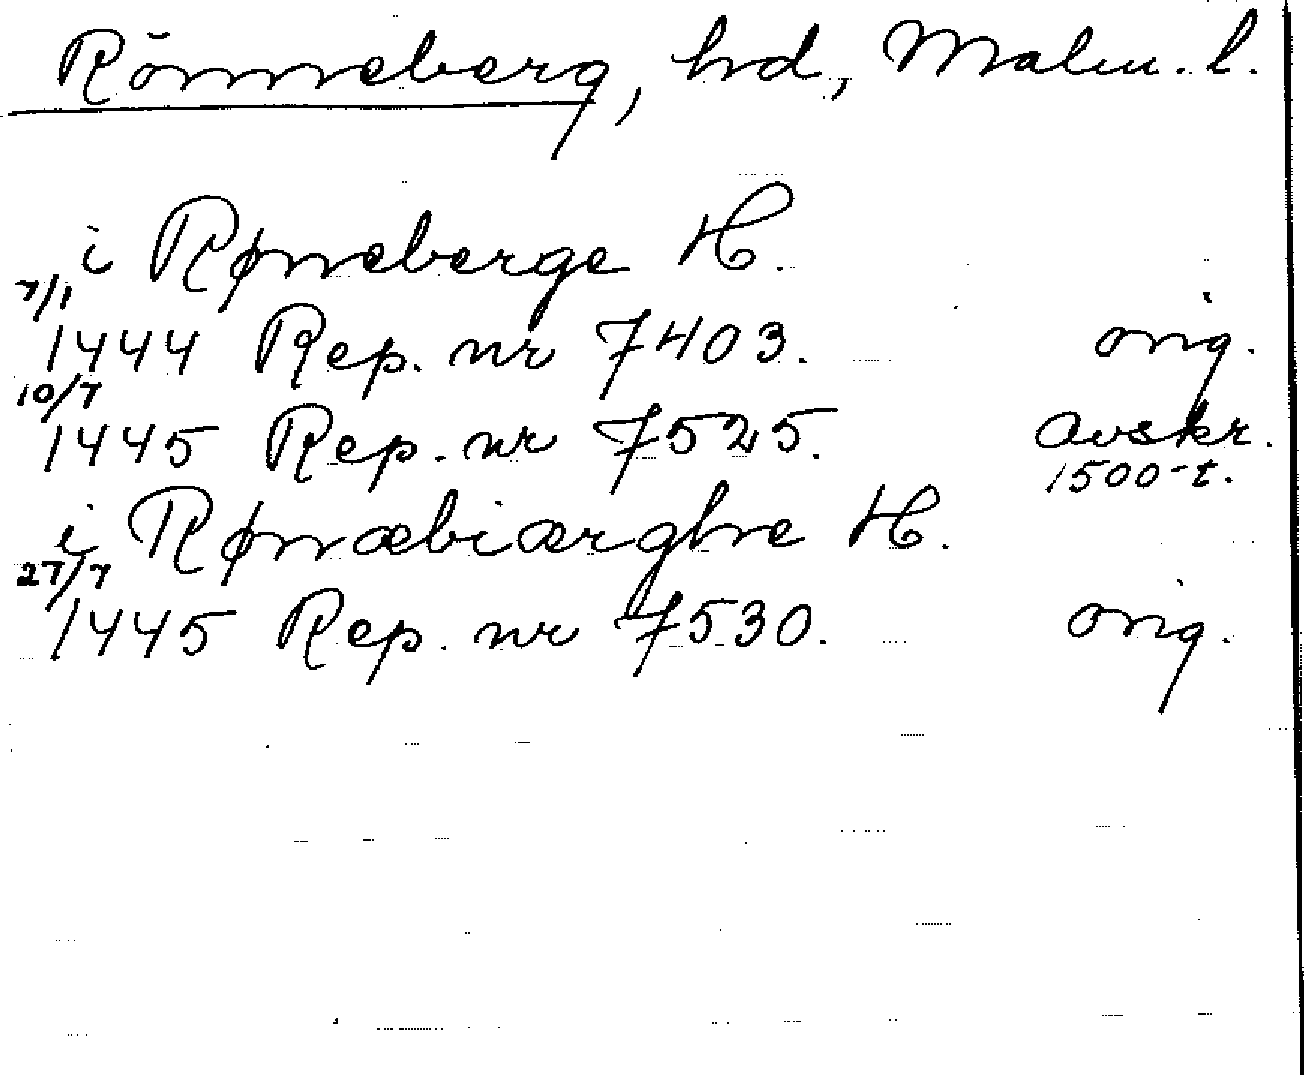 Rönneberg, hrd, Malm. l.
i Rønneberge H.
7/1
1444 Rep. nr 7403. orig.
10/7
1445 Rep. nr 7525. avskr.
1500-t.
i Rønæbiærghe H.
27/7
1445 Rep. nr 7530. orig.